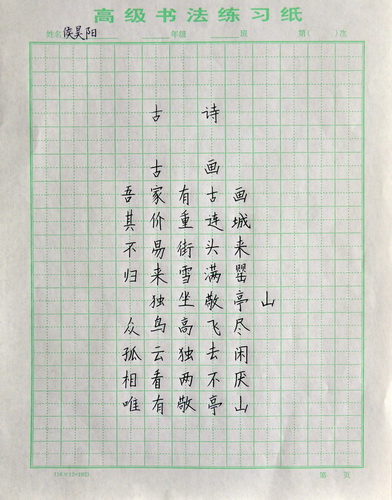 高级书法练习纸
姓名 侯昊阳 年级 班 第( )次
古诗
古画
吾家有古画
其价重连城
不易街头来
归来雪满罂
独坐敬亭山
众鸟高飞尽
孤云独去闲
相看两不厌
唯有敬亭山
第 页